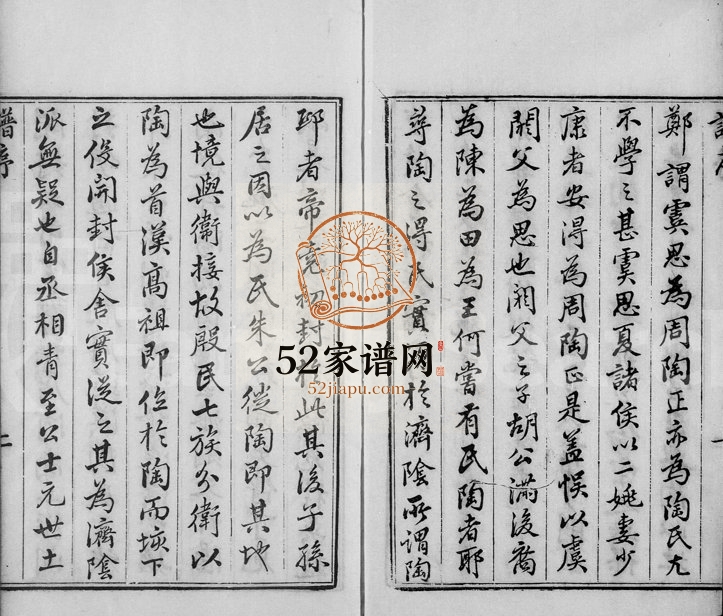 鄭謂虞思為周陶正亦為陶氏尤
不學之甚虞思夏諸侯以二姚妻少
康者安得為周陶正是盖悮以虞
閼父為思也閼父之子胡公滿後喬
為陳為田為王何嘗有氏陶者耶
尋陶之得氏實於濟陰所謂陶
邱者帝堯初封於此其後子孫
居之因以為氏朱公從陶即其地
也境與衛接故殷民七族分衛以
陶為首漢高祖即位於陶而垓下
之役開封侯舍實從之其為濟陰
派無疑也自丞相青至公士元世土
譜序
二
一
52家谱网
52jiapu.com